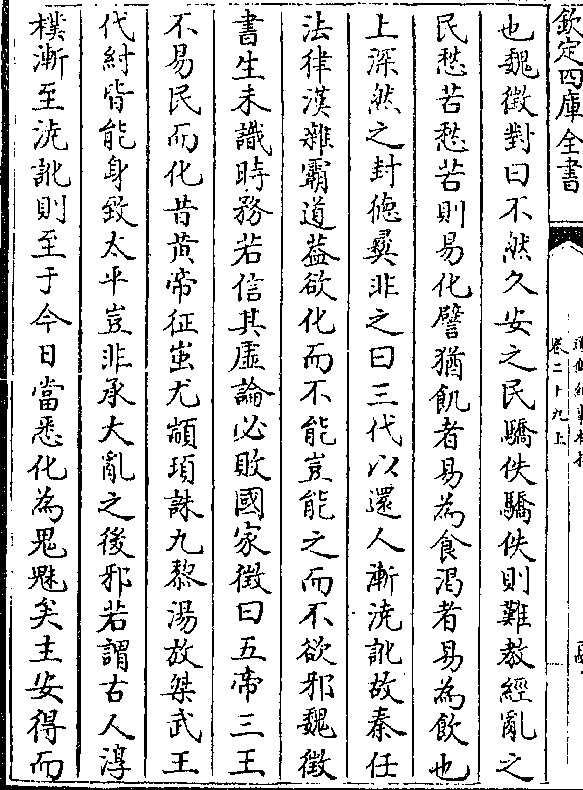 欽定四庫全書
卷二十九上
也魏徵對曰不然久安之民驕佚驕佚則難教經亂之
民愁苦愁苦則易化譬猶飢者易為食渴者易為飲也
上深然之封徳彛非之曰三代以還人漸澆訛故秦任
法律漢雜霸道葢欲化而不能豈能之而不欲邪魏徵
書生未識時務若信其虛論必敗國家徵曰五帝三王
不易民而化昔黄帝征蚩尤顓頊誅九黎湯放桀武王
代紂皆能身致太平豈非承大亂之後邪若謂古人淳
樸漸至澆訛則至于今日當悉化為鬼魅矣主安得而